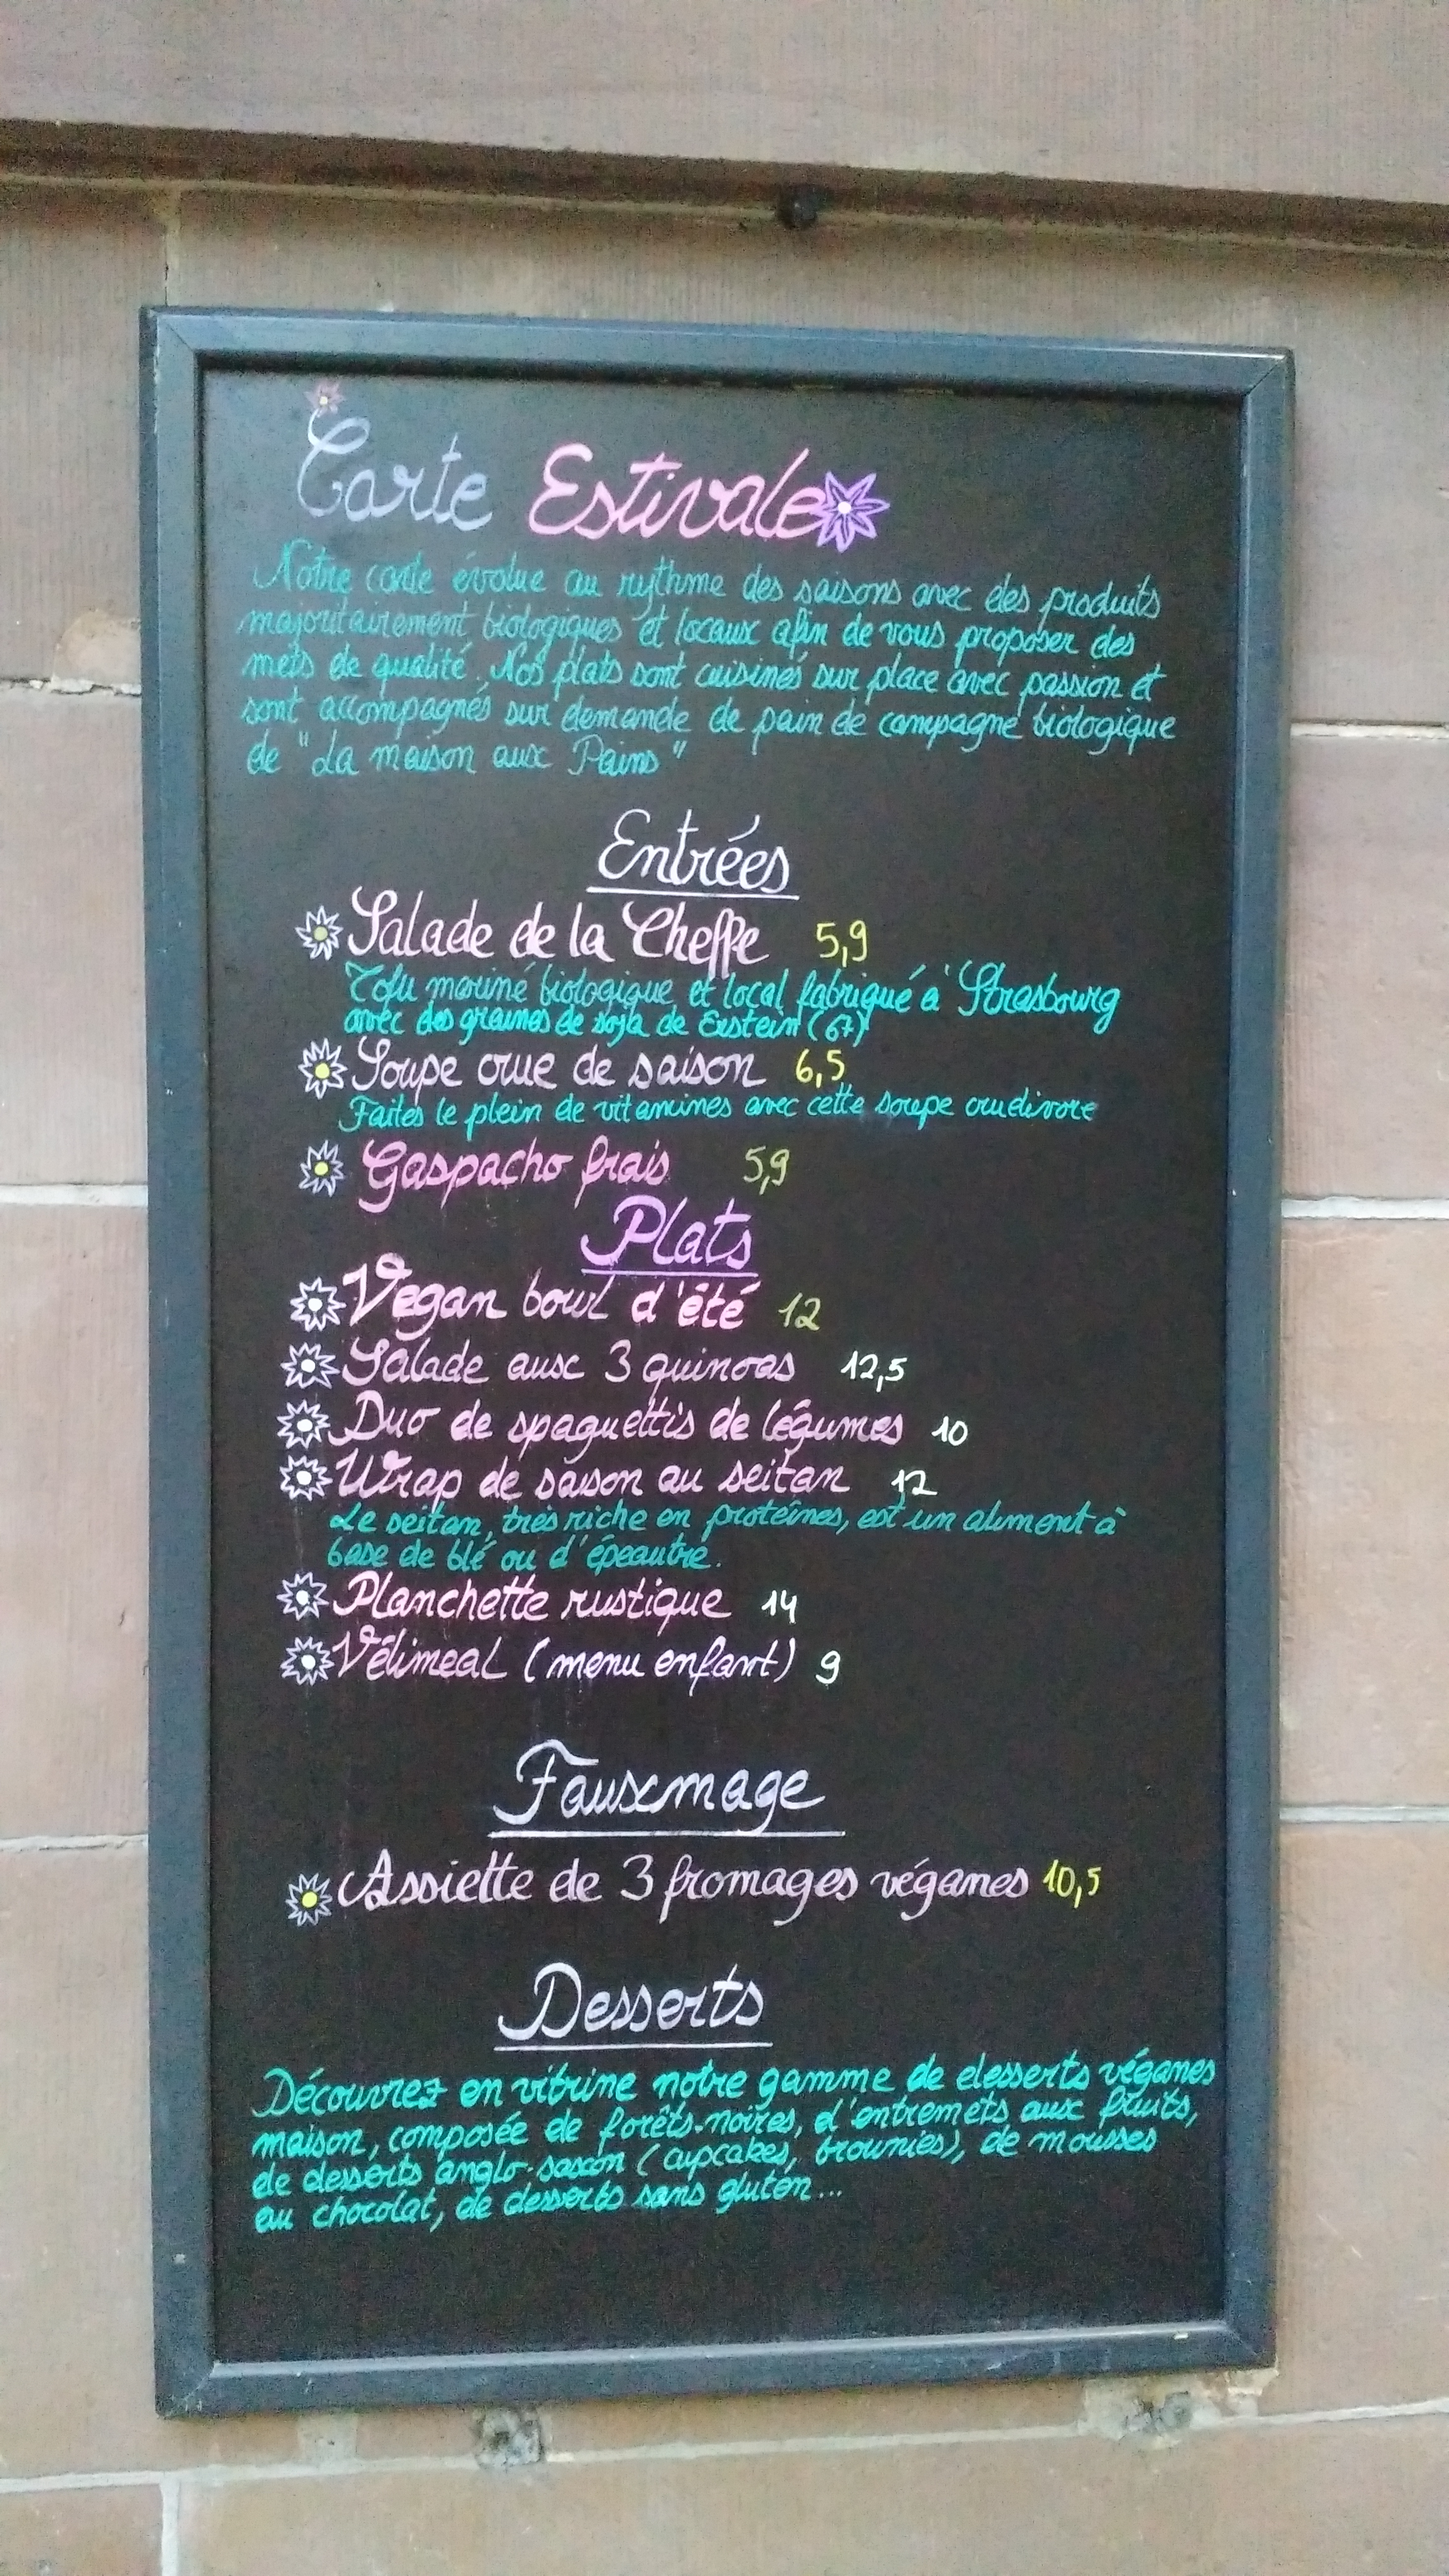 Carte Estivale
Notre carte évolue au rythme des saisons avec des produits
majoritairement biologiques et locaux afin de vous proposer des
mets de qualité. Nos plats sont cuisinés sur place avec passion et
sont accompagnés sur demande de pain de campagne biologique
de "La maison aux Pains"
Entrées
Salade de la Cheffe 5,9
Tofu mariné biologique et local fabriqué à Strasbourg
avec des graines de soja de Erstein (67)
Soupe crue de saison 6,5
Faites le plein de vitamines avec cette soupe crudivore
Gaspacho frais 5,9
Plats
Vegan bowl d'été 12
Salade aux 3 quinoas 12,5
Duo de spaguettis de légumes 10
Wrap de saison au seitan 12
Le seitan, très riche en protéines, est un aliment à
base de blé ou d'épeautre.
Planchette rustique 14
Vélimeal (menu enfant) 9
Fauxmage
Assiette de 3 fromages véganes 10,5
Desserts
Découvrez en vitrine notre gamme de desserts véganes
maison, composée de forêts-noires, d'entremets aux fruits,
de desserts anglo-saxon (cupcakes, brownies), de mousses
au chocolat, de desserts sans gluten...